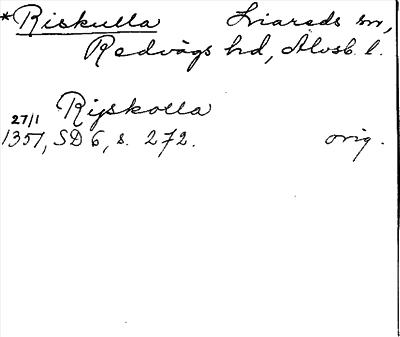 *Riskulla Liareds sn,
Redvägs hd, Älvsb. l.
Ryskolla
27/1
1351, SD 6, s. 272. orig.